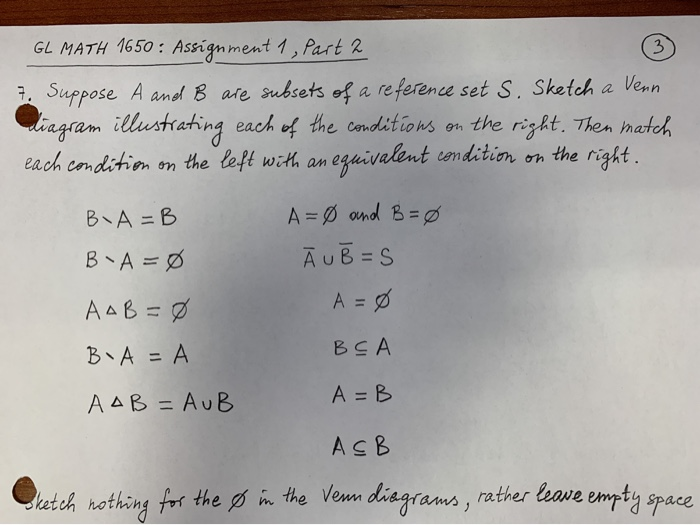 GL MATH 1650: Assignment 1, Part 2 3
7. Suppose A and B are subsets of a reference set S. Sketch a Venn
diagram illustrating each of the conditions on the right. Then match
each condition on the left with an equivalent condition on the right.
B∖A = B A = ∅ and B = ∅
B∖A = ∅ A̅ ∪ B̅ = S
A △ B = ∅ A = ∅
B∖A = A B ⊆ A
A △ B = A ∪ B A = B
A ⊆ B
Sketch nothing for the ∅ in the Venn diagrams, rather leave empty space